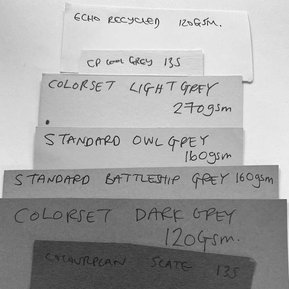 ECHO RECYCLED 120GSM.
CP COOL GREY 135
COLORSET LIGHT GREY
270gsm
STANDARD OWL GREY
160gsm
STANDARD BATTLESHIP GREY 160gsm
COLORSET DARK GREY
120Gsm.
COLOURPLAN SLATE 135